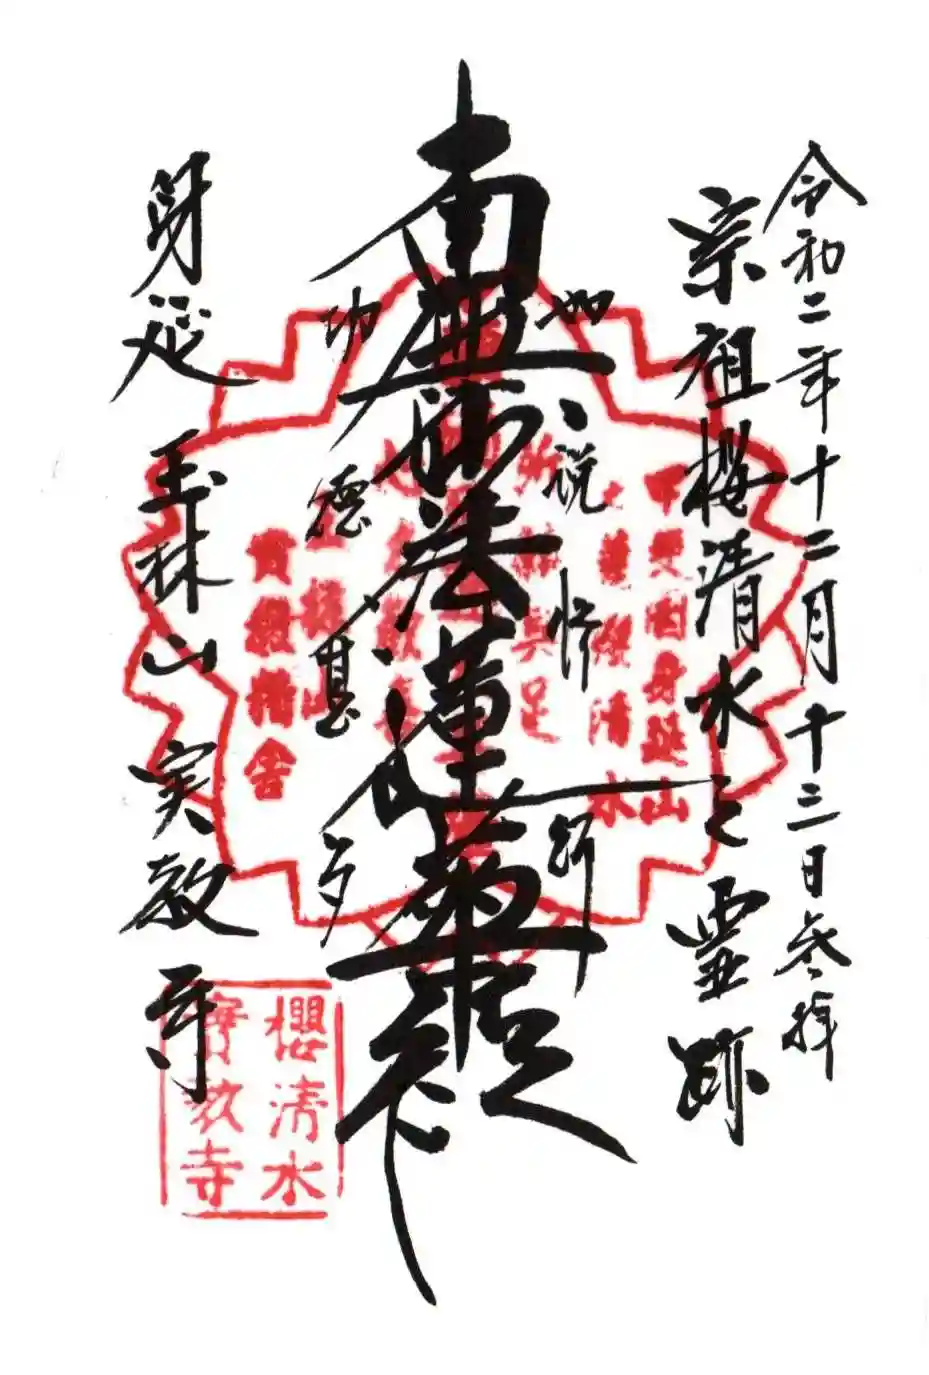 令和二年十二月十三日参拝
宗祖櫻清水之霊跡
如説修行
南無妙法蓮華経
功徳甚多
身延 玉林山 実教寺
甲斐国身延山
清水
興足
實教精舎
櫻清水
實教寺